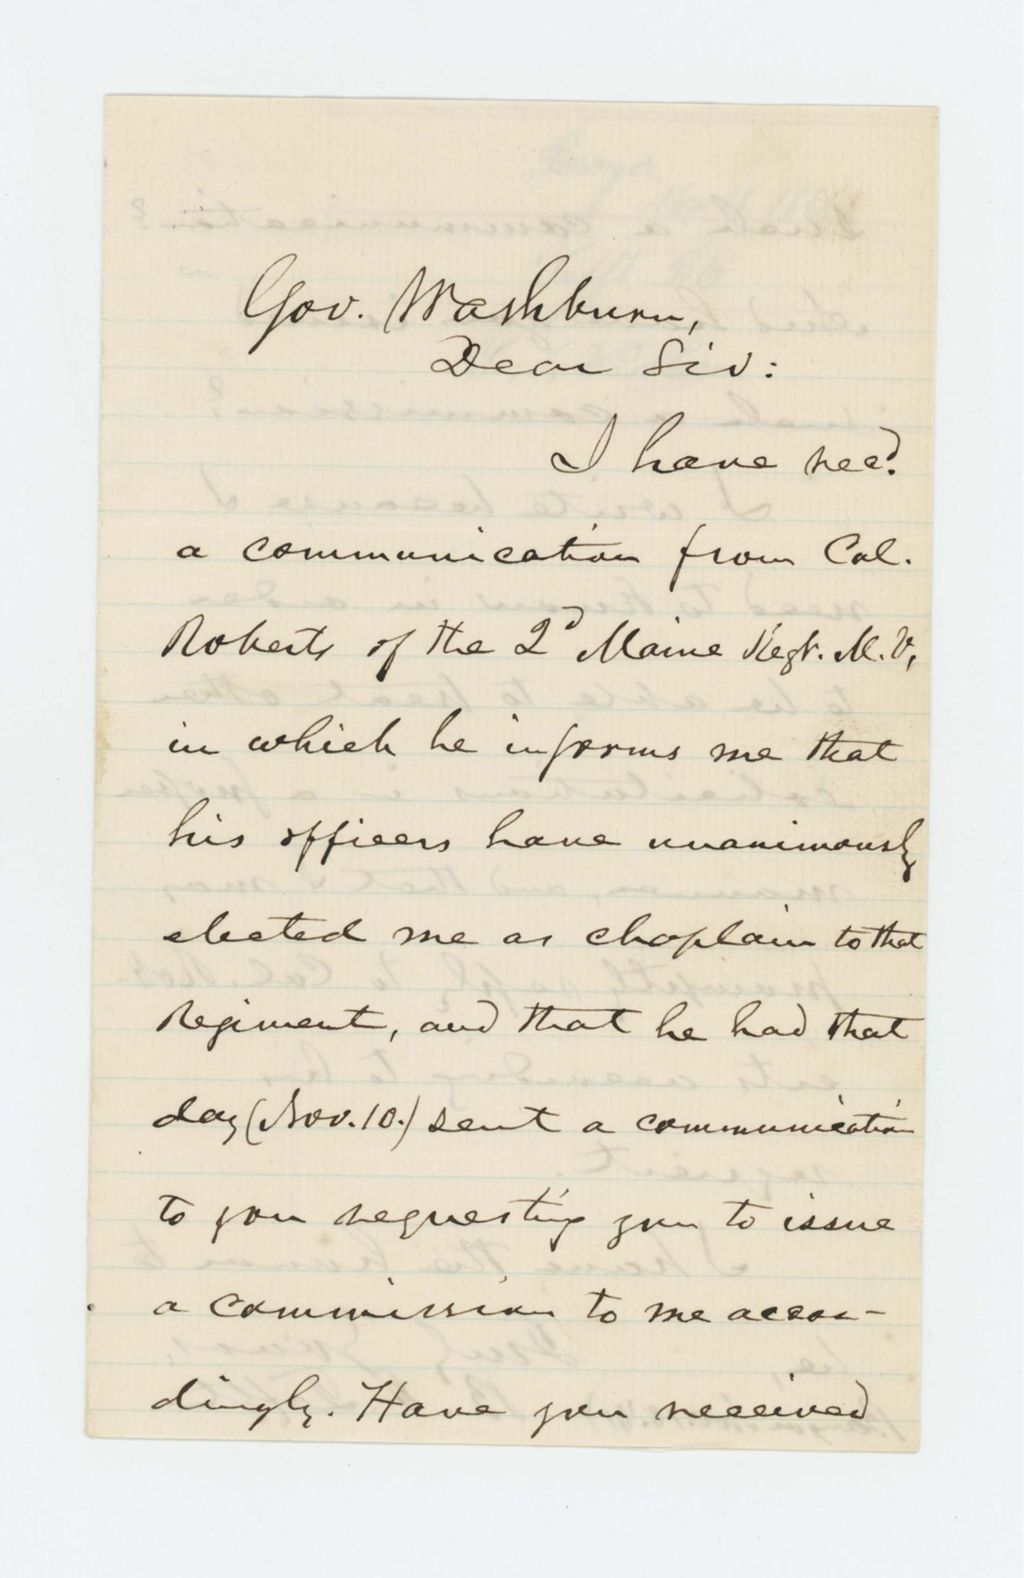 Gov. Washburn,
Dear Sir:
I have recd.
a communication from Col.
Roberts of the 2d Maine Regt. M. V,
in which he informs me that
his officers have unanimously
elected me as chaplain to that
Regiment, and that he had that
day (Nov. 10.) sent a communication
to you requesting you to issue
a commission to me accor-
dingly. Have you received